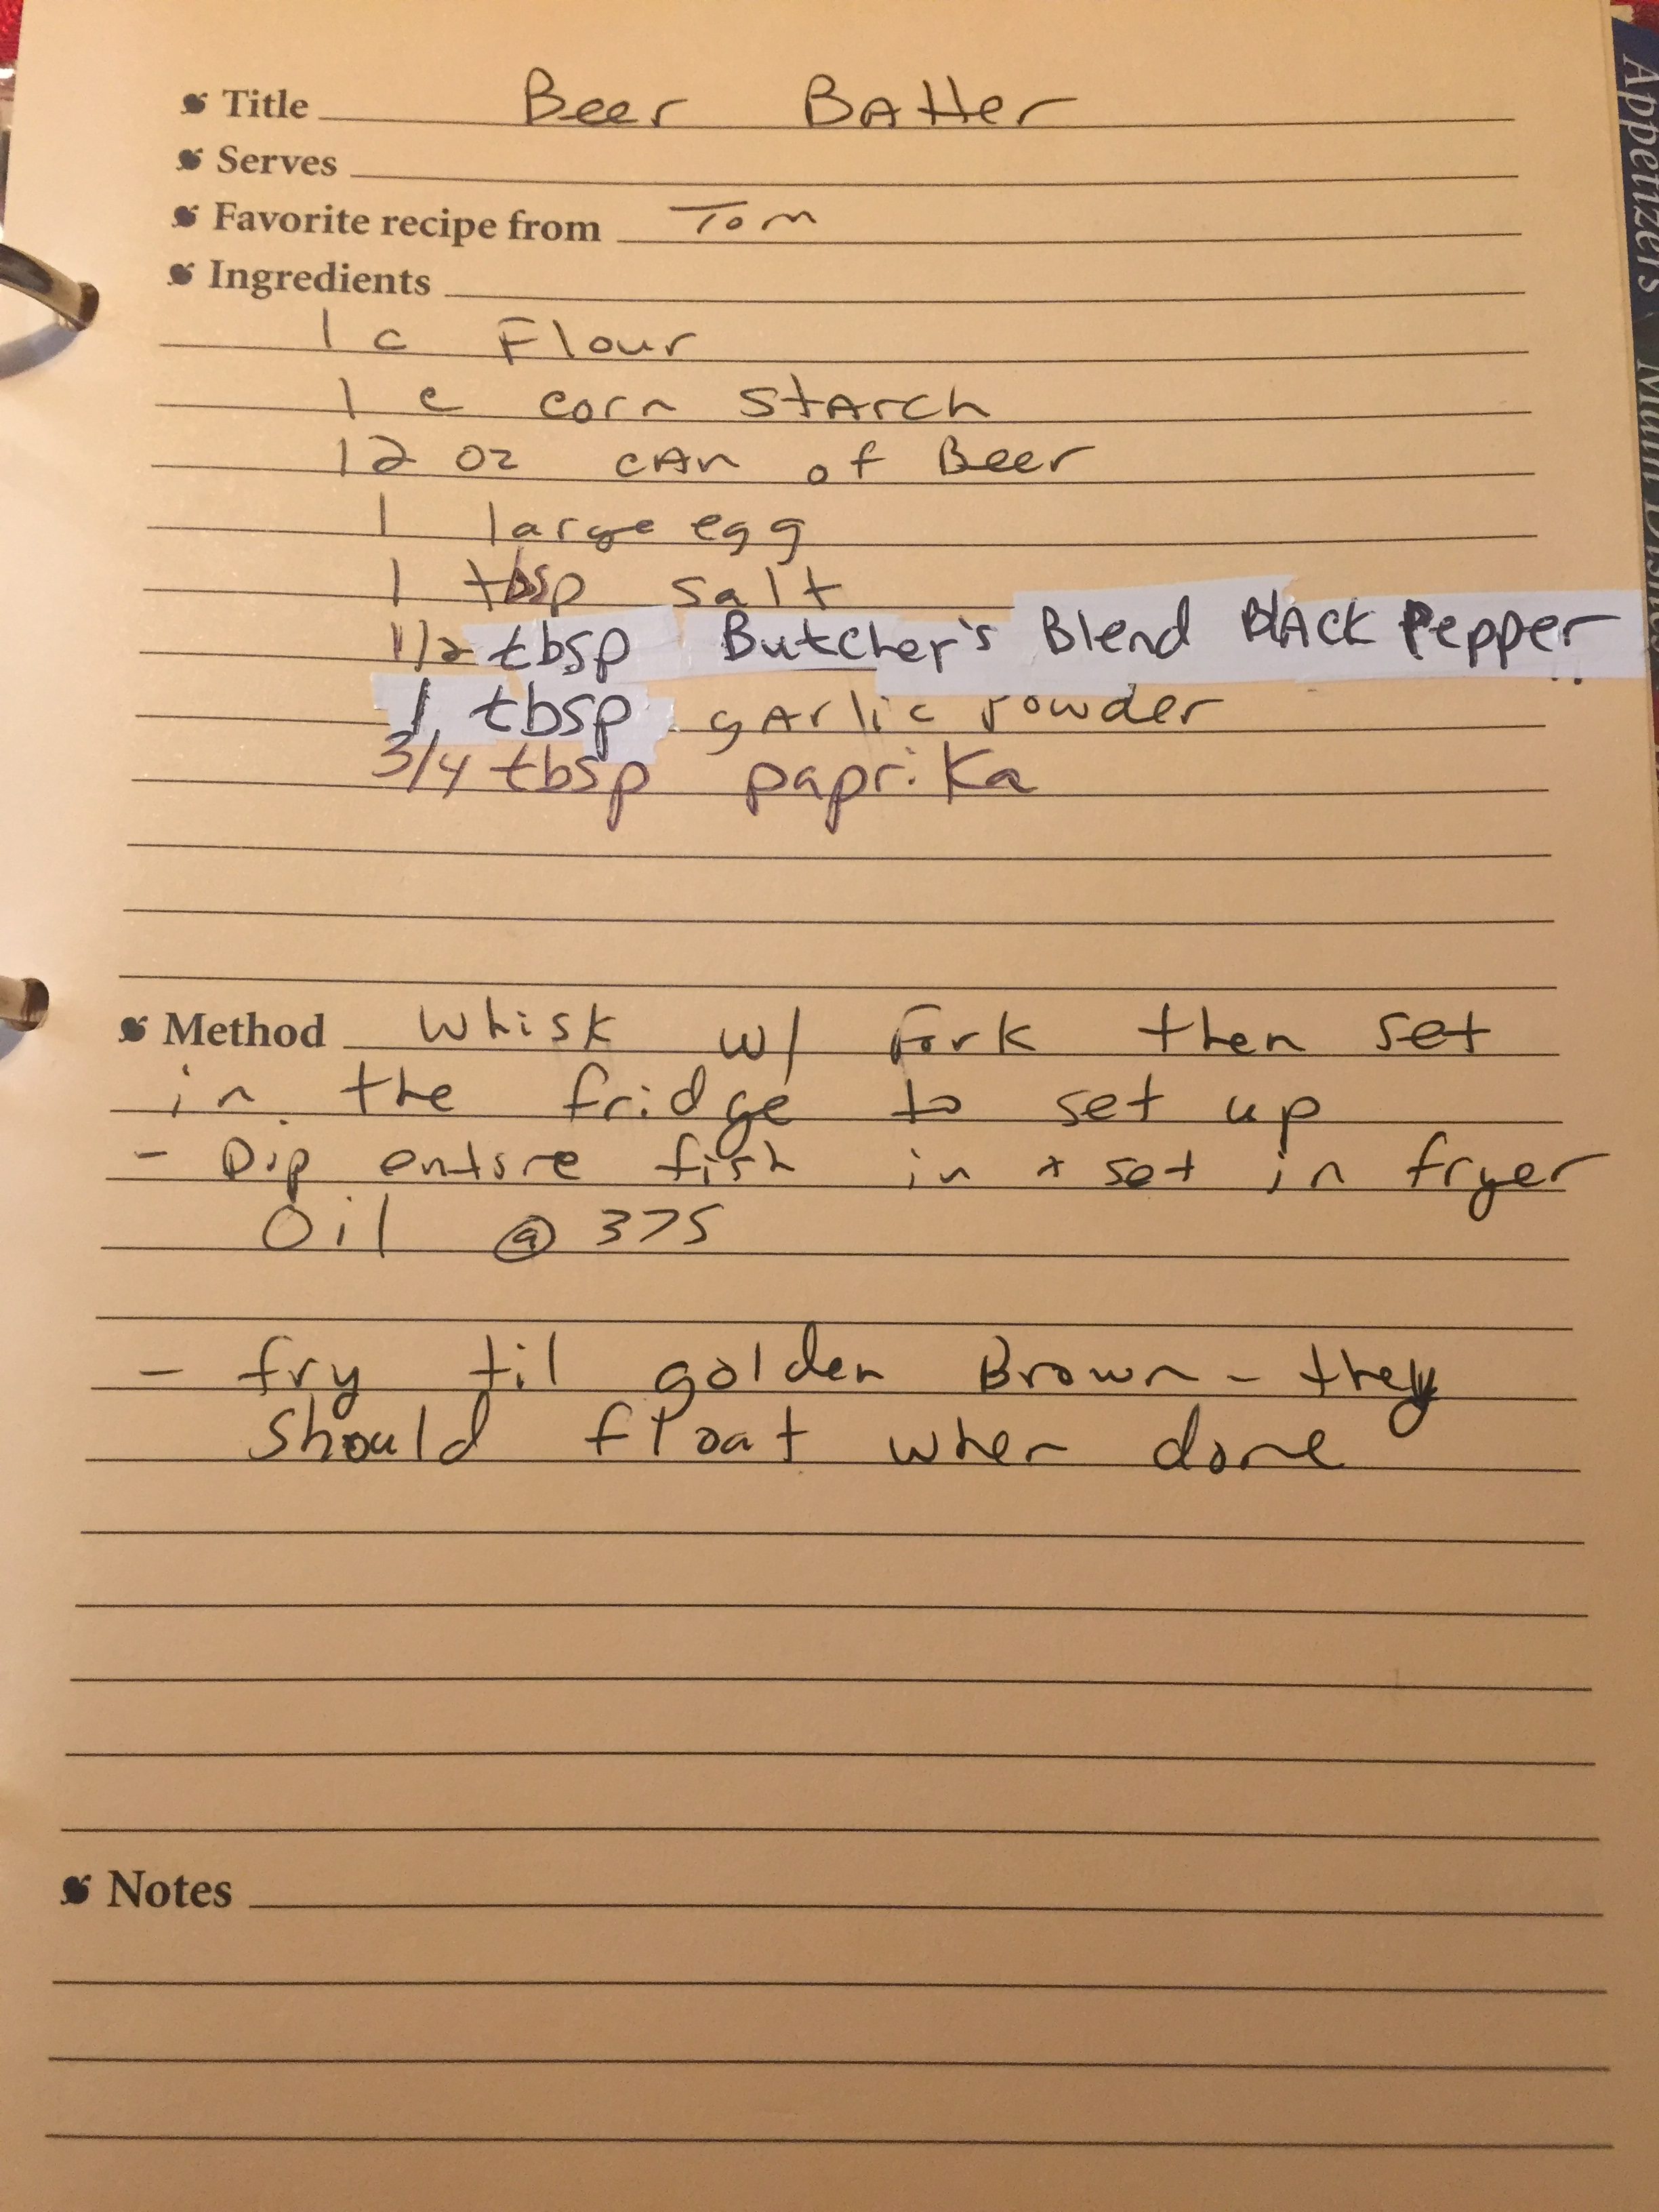 Title Beer Batter
Serves
Favorite recipe from Tom
Ingredients
1 c Flour
1 c corn starch
12 oz can of Beer
1 large egg
1 tbsp salt
1/2 tbsp Butcher's Blend Black Pepper
1 tbsp garlic powder
3/4 tbsp paprika
Method Whisk w/ fork then set
in the fridge to set up
- Dip entire fish in + set in fryer
Oil @ 375
- fry til golden Brown - they
should float when done
Notes
Appetizers
Main Dishes